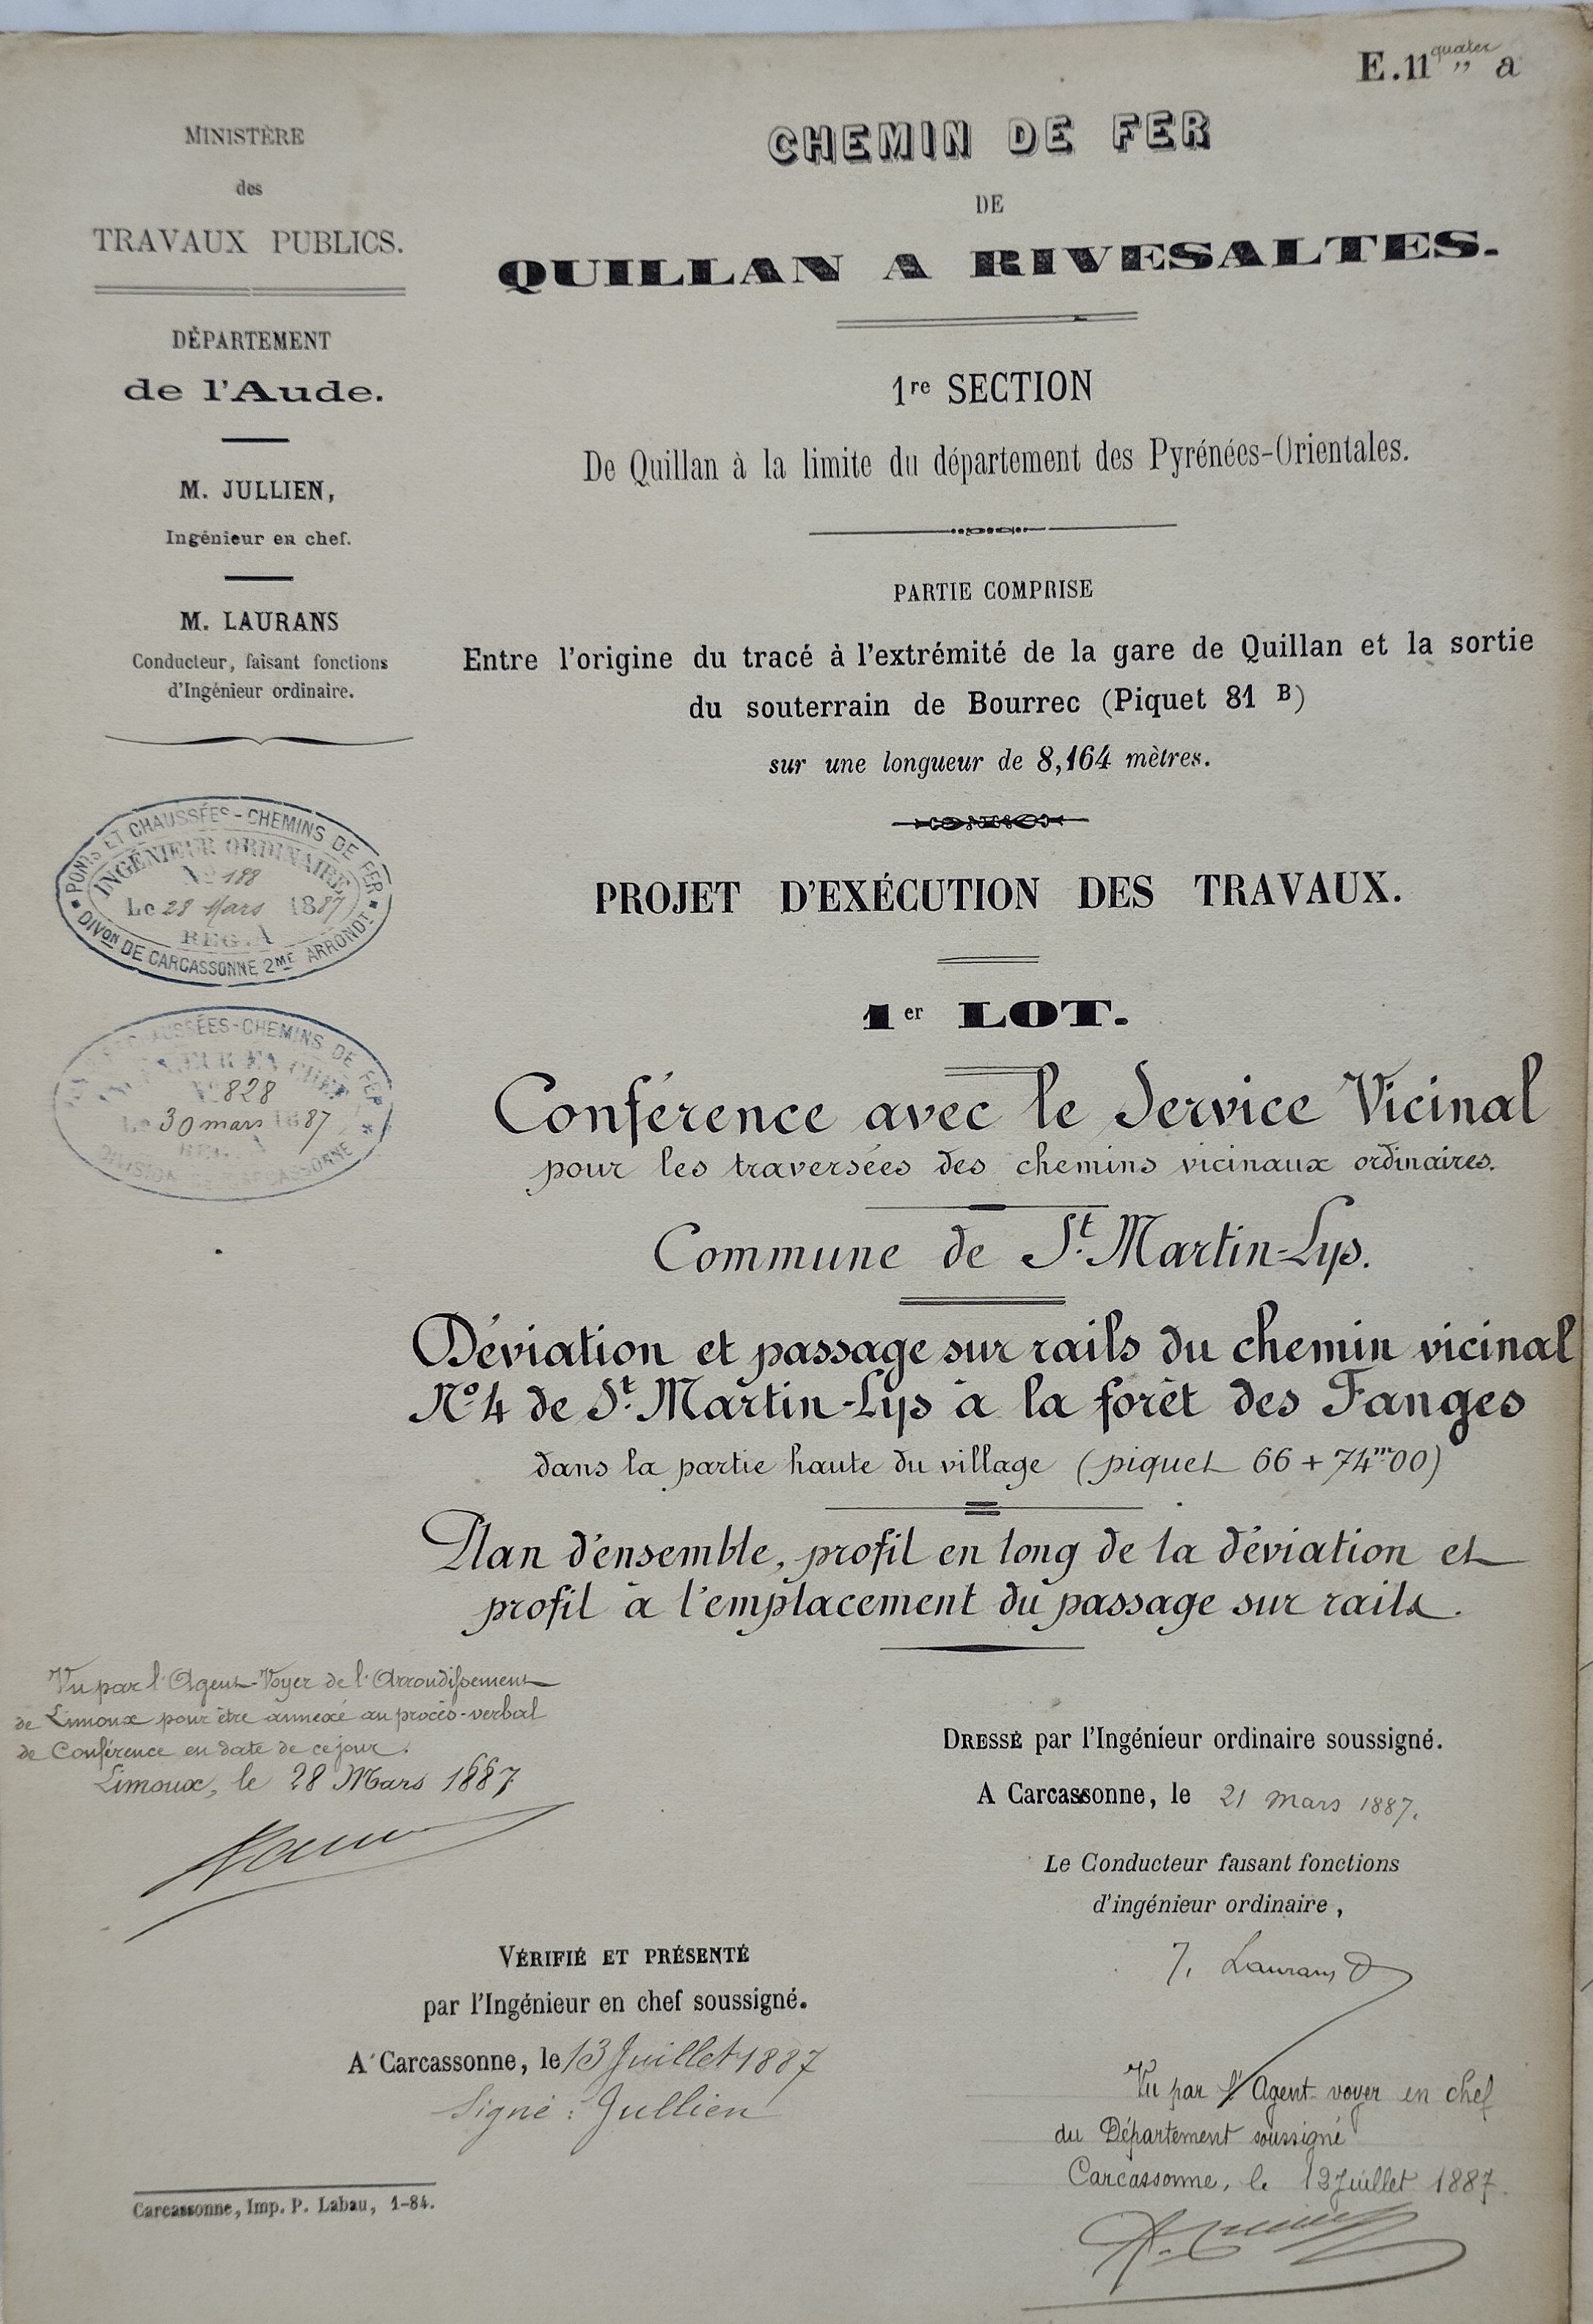 E.11 quater " a
MINISTÈRE
des
TRAVAUX PUBLICS.
DÉPARTEMENT
de l'Aude.
M. JULLIEN,
Ingénieur en chef.
M. LAURANS
Conducteur, faisant fonctions
d'Ingénieur ordinaire.
PONTS ET CHAUSSÉES - CHEMINS DE FER
INGÉNIEUR ORDINAIRE
No 188
Le 28 Mars 1887
REG. A
DIVon DE CARCASSONNE 2ME ARRONDT
CHAUSSÉES - CHEMINS DE FER
EN CHEF
No 828
Le 30 mars 1887
DIVISION DE CARCASSONNE
CHEMIN DE FER
DE
QUILLAN A RIVESALTES.
1re SECTION
De Quillan à la limite du département des Pyrénées-Orientales.
PARTIE COMPRISE
Entre l'origine du tracé à l'extrémité de la gare de Quillan et la sortie
du souterrain de Bourrec (Piquet 81 B)
sur une longueur de 8,164 mètres.
PROJET D'EXÉCUTION DES TRAVAUX.
1er LOT.
Conférence avec le Service Vicinal
pour les traversées des chemins vicinaux ordinaires.
Commune de St. Martin-Lys.
Déviation et passage sur rails du chemin vicinal
No 4 de St. Martin-Lys à la forêt des Fanges
dans la partie haute du village (piquet 66 + 74m00)
Plan d'ensemble, profil en long de la déviation et
profil à l'emplacement du passage sur rails.
Vu par l'Agent-Voyer de l'Arrondissement
de Limoux pour être annexé au procès-verbal
de Conférence en date de ce jour.
Limoux, le 28 Mars 1887
DRESSÉ par l'Ingénieur ordinaire soussigné.
A Carcassonne, le 21 mars 1887.
Le Conducteur faisant fonctions
d'ingénieur ordinaire,
J. Laurans
VÉRIFIÉ ET PRÉSENTÉ
par l'Ingénieur en chef soussigné.
A Carcassonne, le 13 Juillet 1887
Signé : Jullien
Vu par l'Agent-voyer en chef
du Département soussigné
Carcassonne, le 12 Juillet 1887.
Carcassonne, Imp. P. Labau, 1-84.